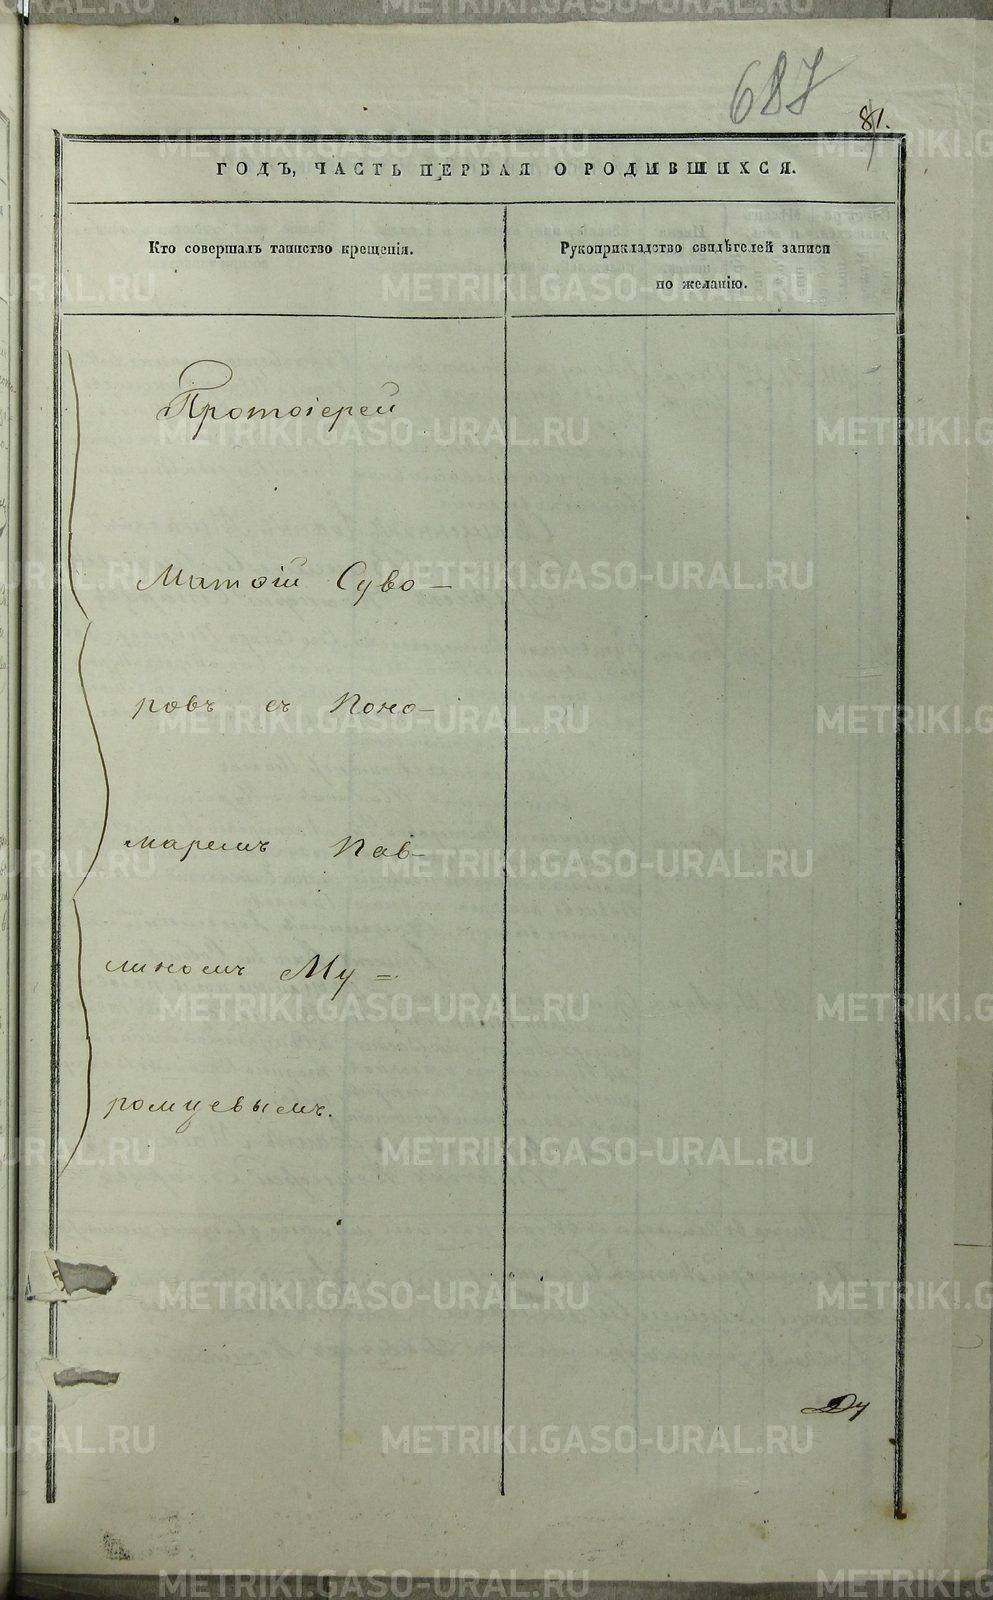 687
81.
ГОДЪ, ЧАСТЬ ПЕРВАЯ О РОДИВШИХСЯ.
Кто совершалъ таинство крещенія.
Рукоприкладство свидѣтелей записи
по желанію.
Протоіерей
Матөій Суво-
ровъ съ Поно-
маремъ Пав-
линомъ Му-
ромцевымъ.
Ду
METRIKI.GASO-URAL.RU